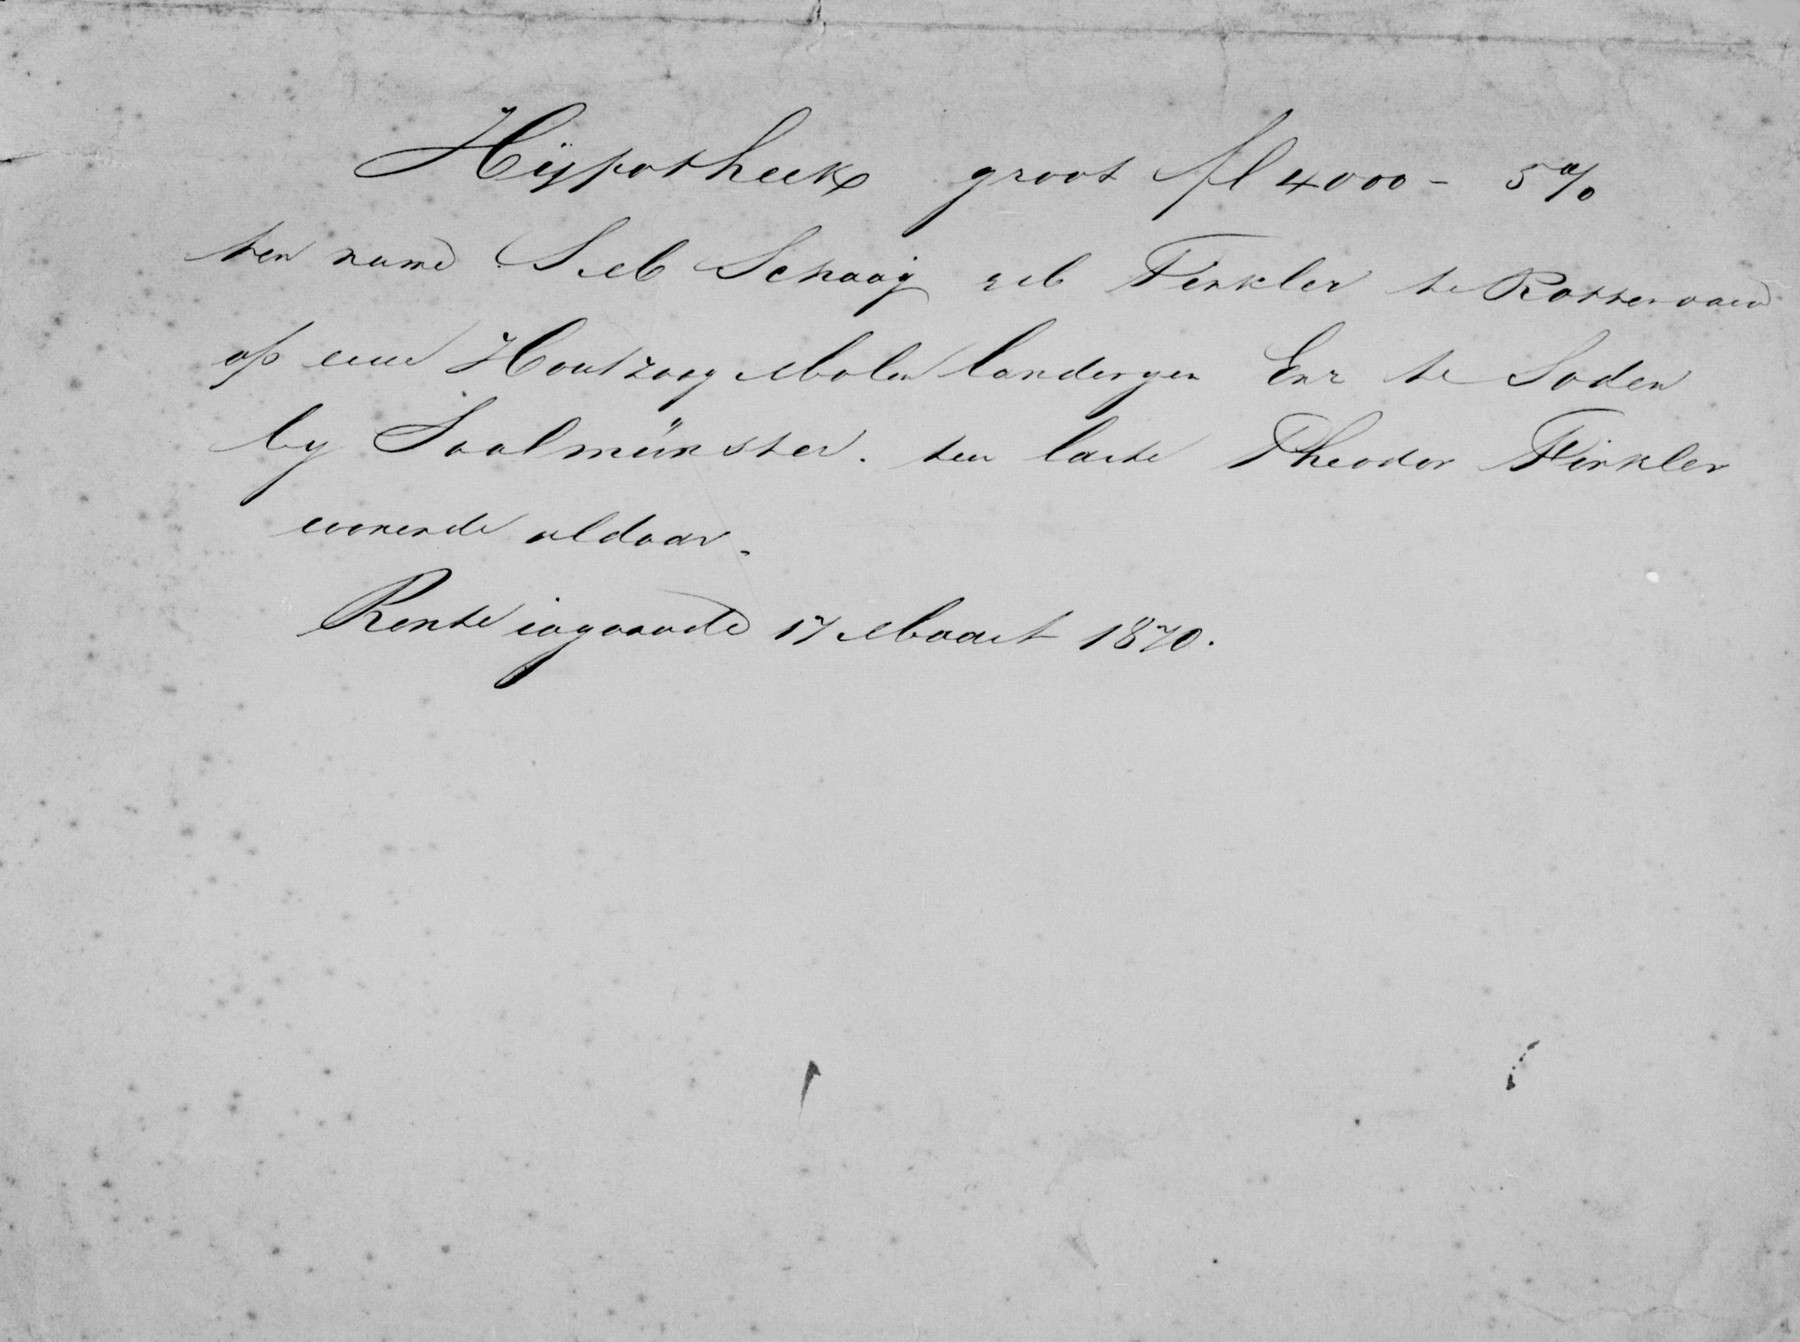 Hÿpotheek groot fl 4000 - 5%
ten name S. M. Schaay geb Finkler te Rotterdam
op eene Houtzaag Molen landeryen Enz te Soden
by Saalmünster. ten laste Theodor Finkler
wonende aldaar.
Rente ingaande 17 Maart 1870.